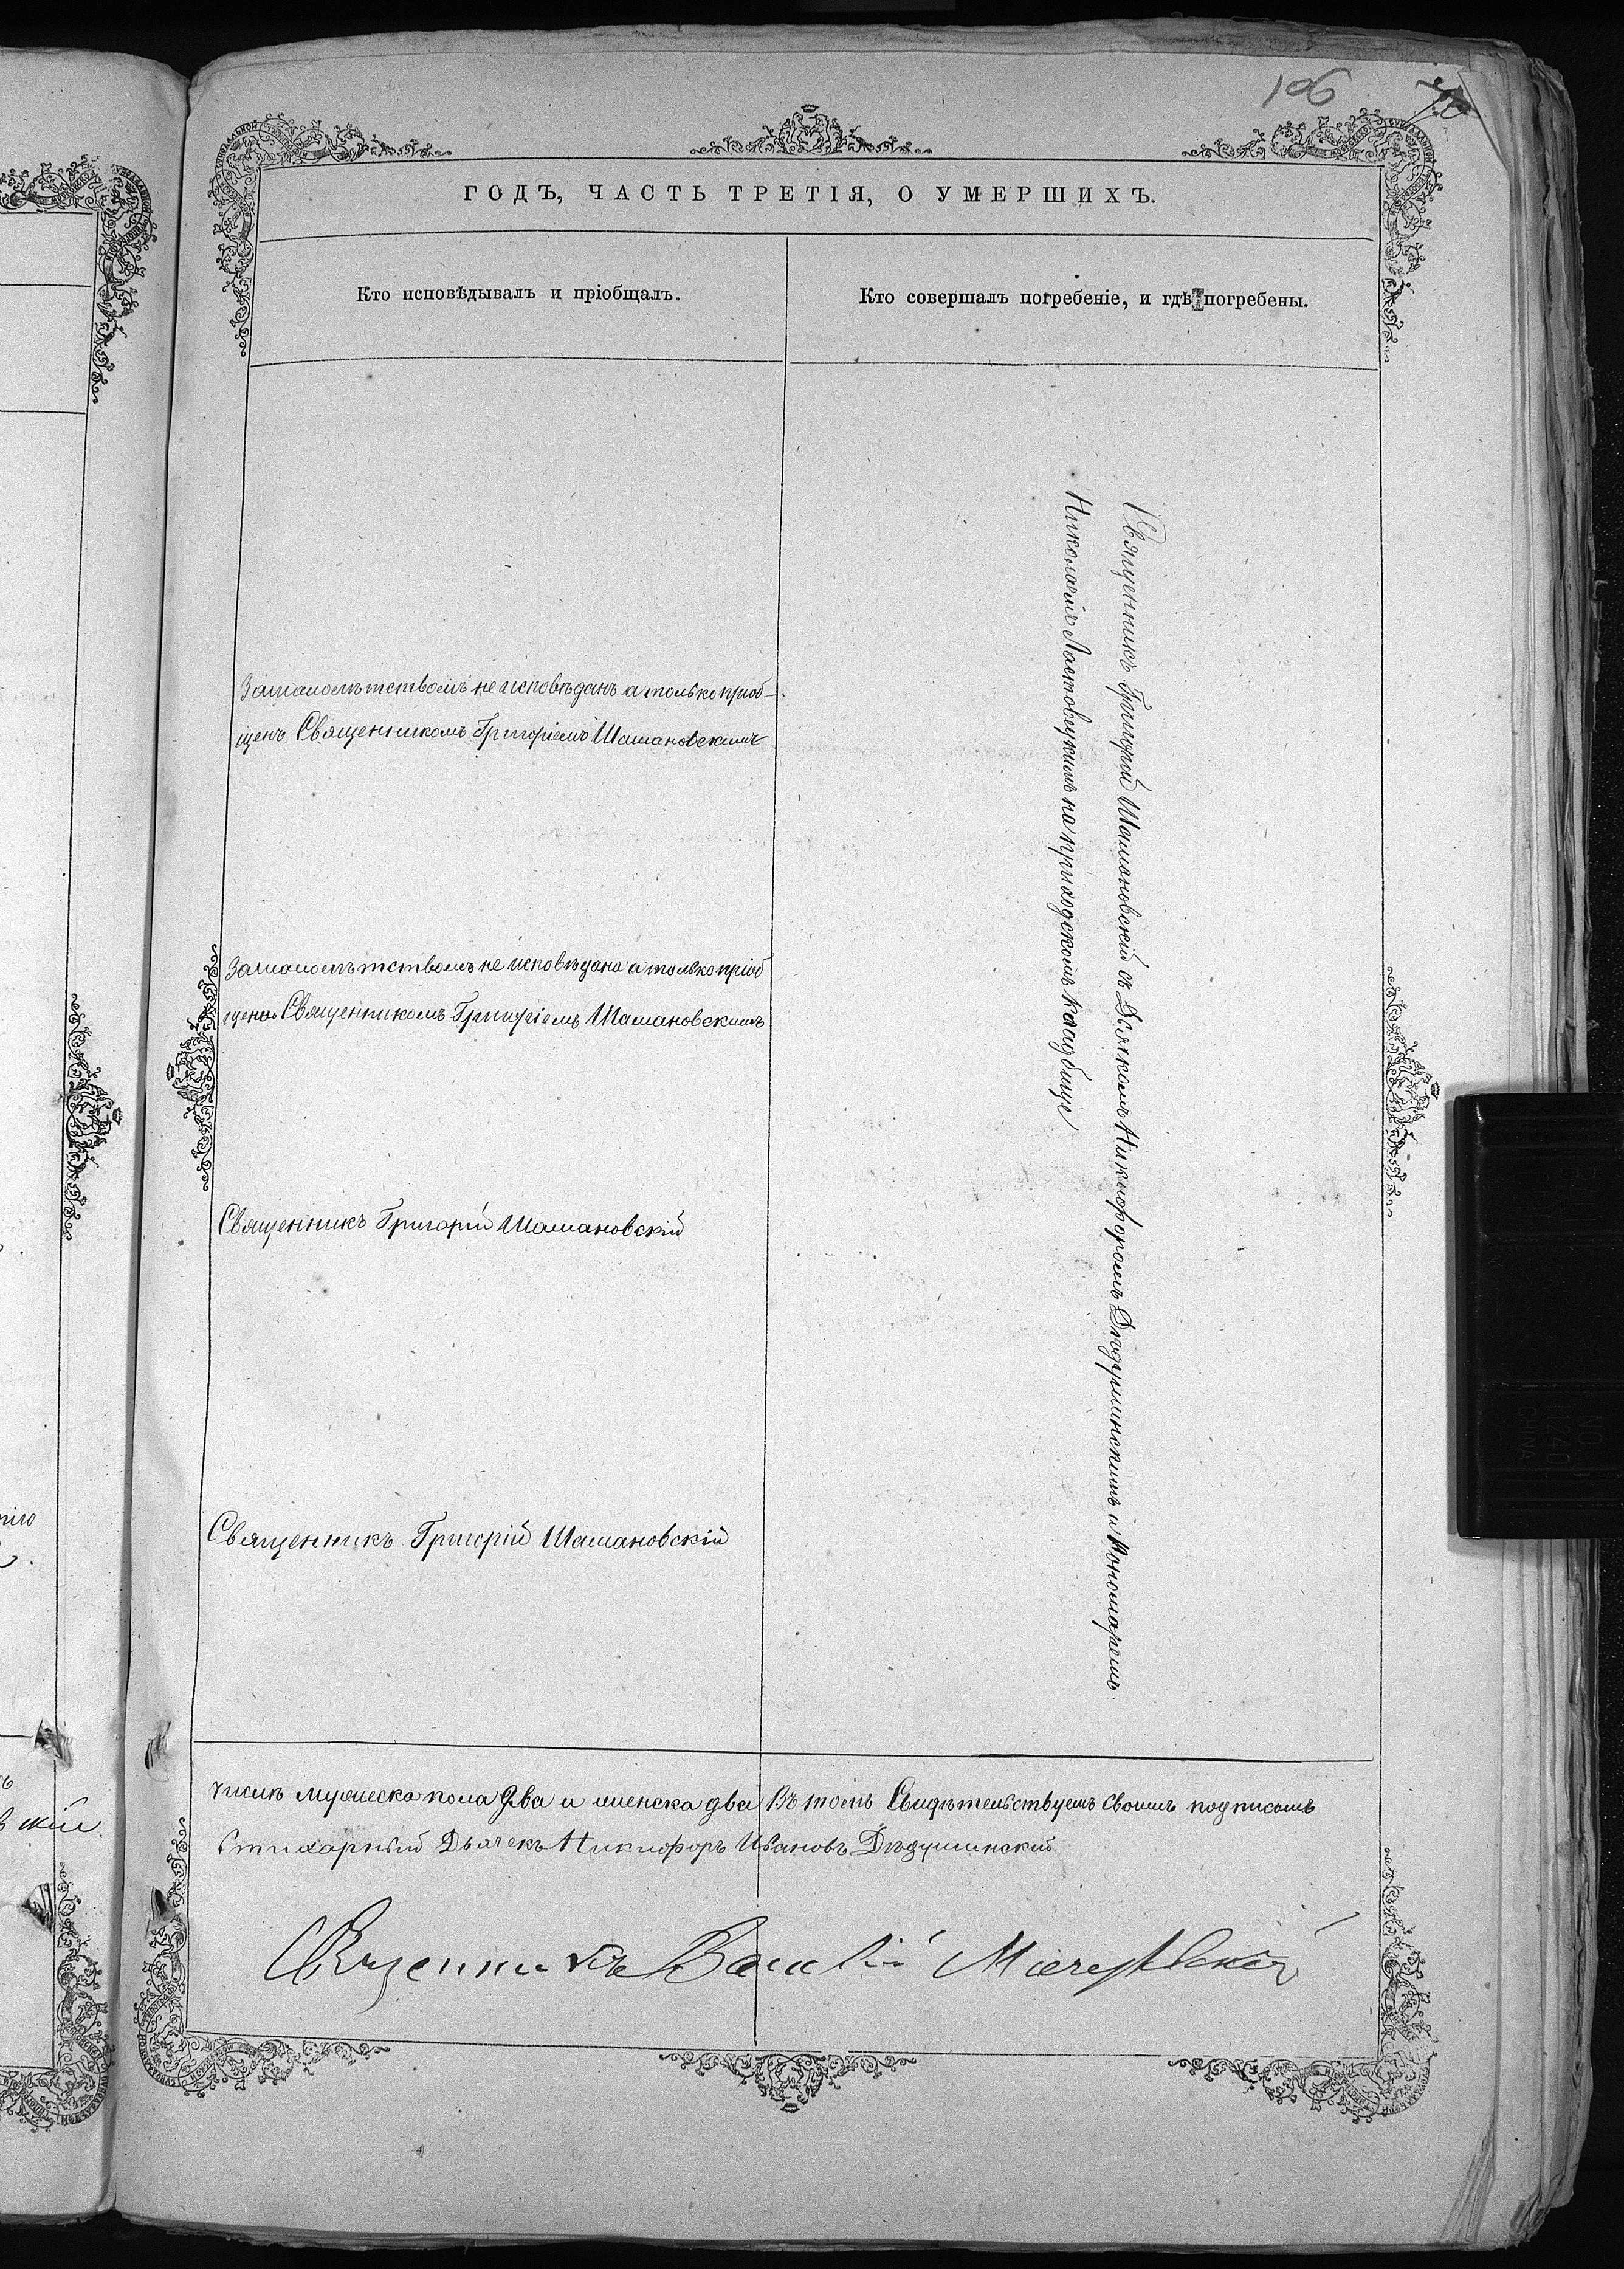 106
ГОДЪ, ЧАСТЬ ТРЕТІЯ, О УМЕРШИХЪ.
Кто исповѣдывалъ и пріобщалъ.
Кто совершалъ погребеніе, и гдѣ погребены.
За малолѣтствомъ не исповѣданъ а только пріоб-
щенъ Священникомъ Григоріемъ Шамановскимъ
За малолѣтствомъ не исповѣдана а только пріоб
щена Священникомъ Григоріемъ Шамановскимъ
Священникъ Григорій Шамановскій
Священникъ Григорій Шамановскій
Священникъ Григорій Шамановскій съ Дьячкомъ Никифоромъ Дѣдушинскимъ и Пономаремъ
Николаемъ Ластовецкимъ на приходскомъ кладбище
числѣ мужеска пола два и женска два Въ томъ Свидѣтельствуемъ своимъ подписомъ
Стихарный Дьячекъ Никифоръ Ивановъ Дѣдушинскій
Священникъ Василій